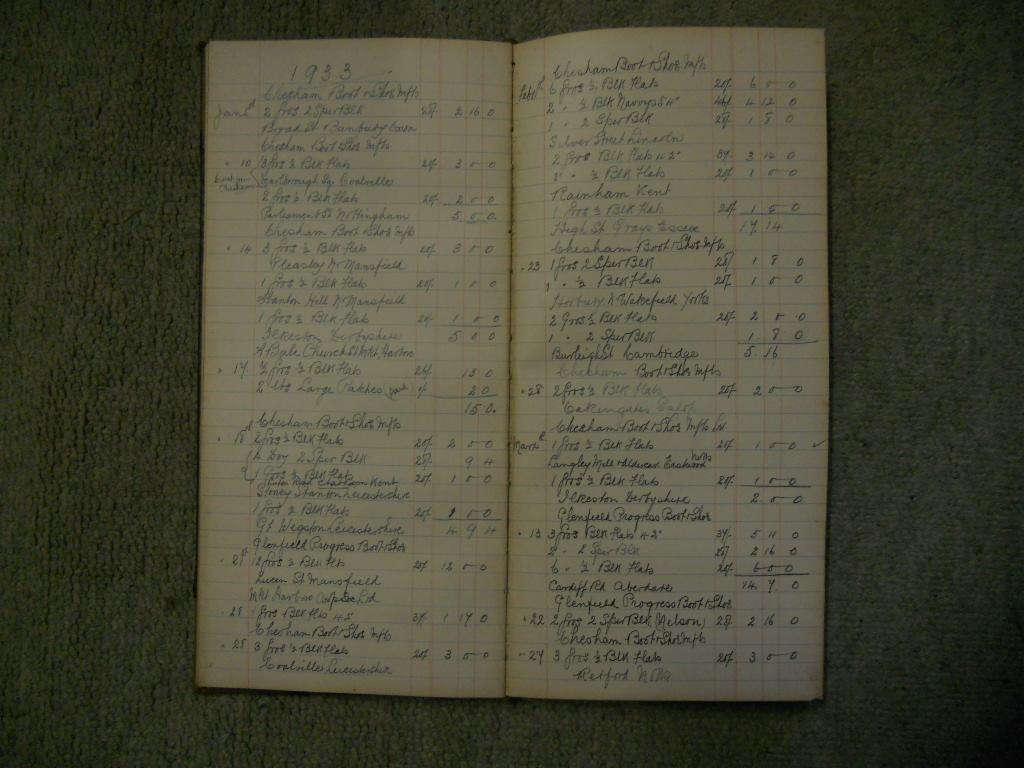 1933
Chesham Boot & Shoe Mfts
Jan 2 Gros 2 Sper BLK 28/- 2 16 0
Broad St Banbury Oxon
Chesham Boot & Shoe Mfts
" 10 3 Gros ½ BLK Flats 20/- 3 0 0
Sq Coalville
2 Gros ½ BLK Flats 20/- 2 0 0
Parliament St Nottingham 5 0 0
Chesham Boot & Shoe Mfts
" 14 3 Gros ½ BLK Flats 20/- 3 0 0
Pleasley Nr Mansfield
1 Gros ½ BLK Flats 20/- 1 0 0
Stanton Hill Nr Mansfield
1 Gros ½ BLK Flats 20/- 1 0 0
Ilkeston Derbyshire 5 0 0
A Bale Church St Mkt Harboro
" 17 ½ Gros ½ BLK Flats 26/- 13 0
2 lbs Large Patches 2 0
15 0
Chesham Boot & Shoe Mfts
" 18 2 Gros ½ BLK Flats 20/- 2 0 0
4 Doz 2 Sper BLK 28/- 9 4
1 Gros ½ BLK Flats 20/- 1 0 0
Road Chatham Kent
Stoney Stanton Leicestershire
1 Gros ½ BLK Flats 20/- 1 0 0
Gt Wigston Leicestershire 4 9 4
Glenfield Progress Boot & Shoe
" 21 12 Gros ½ BLK Flts 20/- 12 0 0
Queen St Mansfield
Mkt Harboro Corp Soc Ltd
" 28 1 Gros BLK Flts 37/- 1 17 0
Chesham Boot & Shoe Mfts
" 25 3 Gros ½ BLK Flats 20/- 3 0 0
Coalville Leicestershire
Chesham Boot & Shoe Mfts
Feb 6 Gros ½ BLK Flats 20/- 6 0 0
2 " ½ BLK Navvys 46/- 4 12 0
1 " 2 Sper BLK 28/- 1 8 0
Silver Street Lincoln
2 Gros BLK Flats 37/- 3 14 0
1 " ½ BLK Flats 20/- 1 0 0
Rainham Kent
1 Gros ½ BLK Flats 20/- 1 0 0
High St Grays Essex 17 14
Chesham Boot & Shoe Mfts
" 23 1 Gros 2 Sper BLK 28/- 1 8 0
1 " ½ BLK Flats 20/- 1 0 0
Horbury Nr Wakefield Yorks
2 Gros ½ BLK Flats 20/- 2 0 0
1 " 2 Sper BLK 1 8 0
Burleigh St Cambridge 5 16
Chesham Boot & Shoe Mfts
" 28 2 Gros ½ BLK Flats 20/- 2 0 0
Oakengates Salop
Chesham Boot & Shoe Mfts Ltd
Mar 1 Gros ½ BLK Flats 20/- 1 0 0 ✓
Langley Mill Aldercar Eastwood Notts
1 Gros ½ BLK Flats 20/- 1 0 0
Ilkeston Derbyshire 2 0 0
Glenfield Progress Boot & Shoe
" 13 3 Gros BLK Flats 37/- 5 11 0
2 " 2 Sper BLK 28/- 2 16 0
6 " ½ BLK Flats 20/- 6 0 0
Cardiff Rd Aberdare 14 7 0
Glenfield Progress Boot & Shoe
" 22 2 Gros 2 Sper BLK (Nelson) 28/- 2 16 0
Chesham Boot & Shoe Mfts
" 27 3 Gros ½ BLK Flats 20/- 3 0 0
Retford Notts